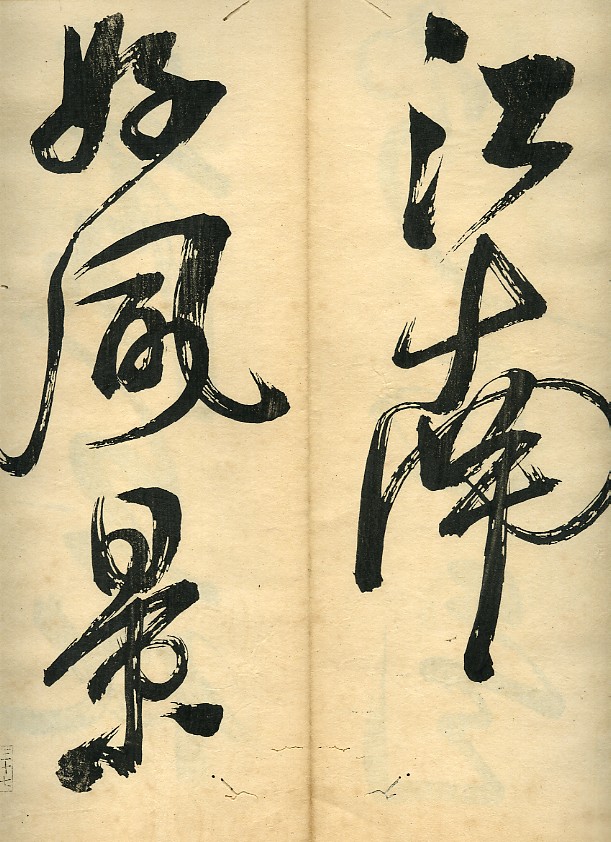 江南
好風景